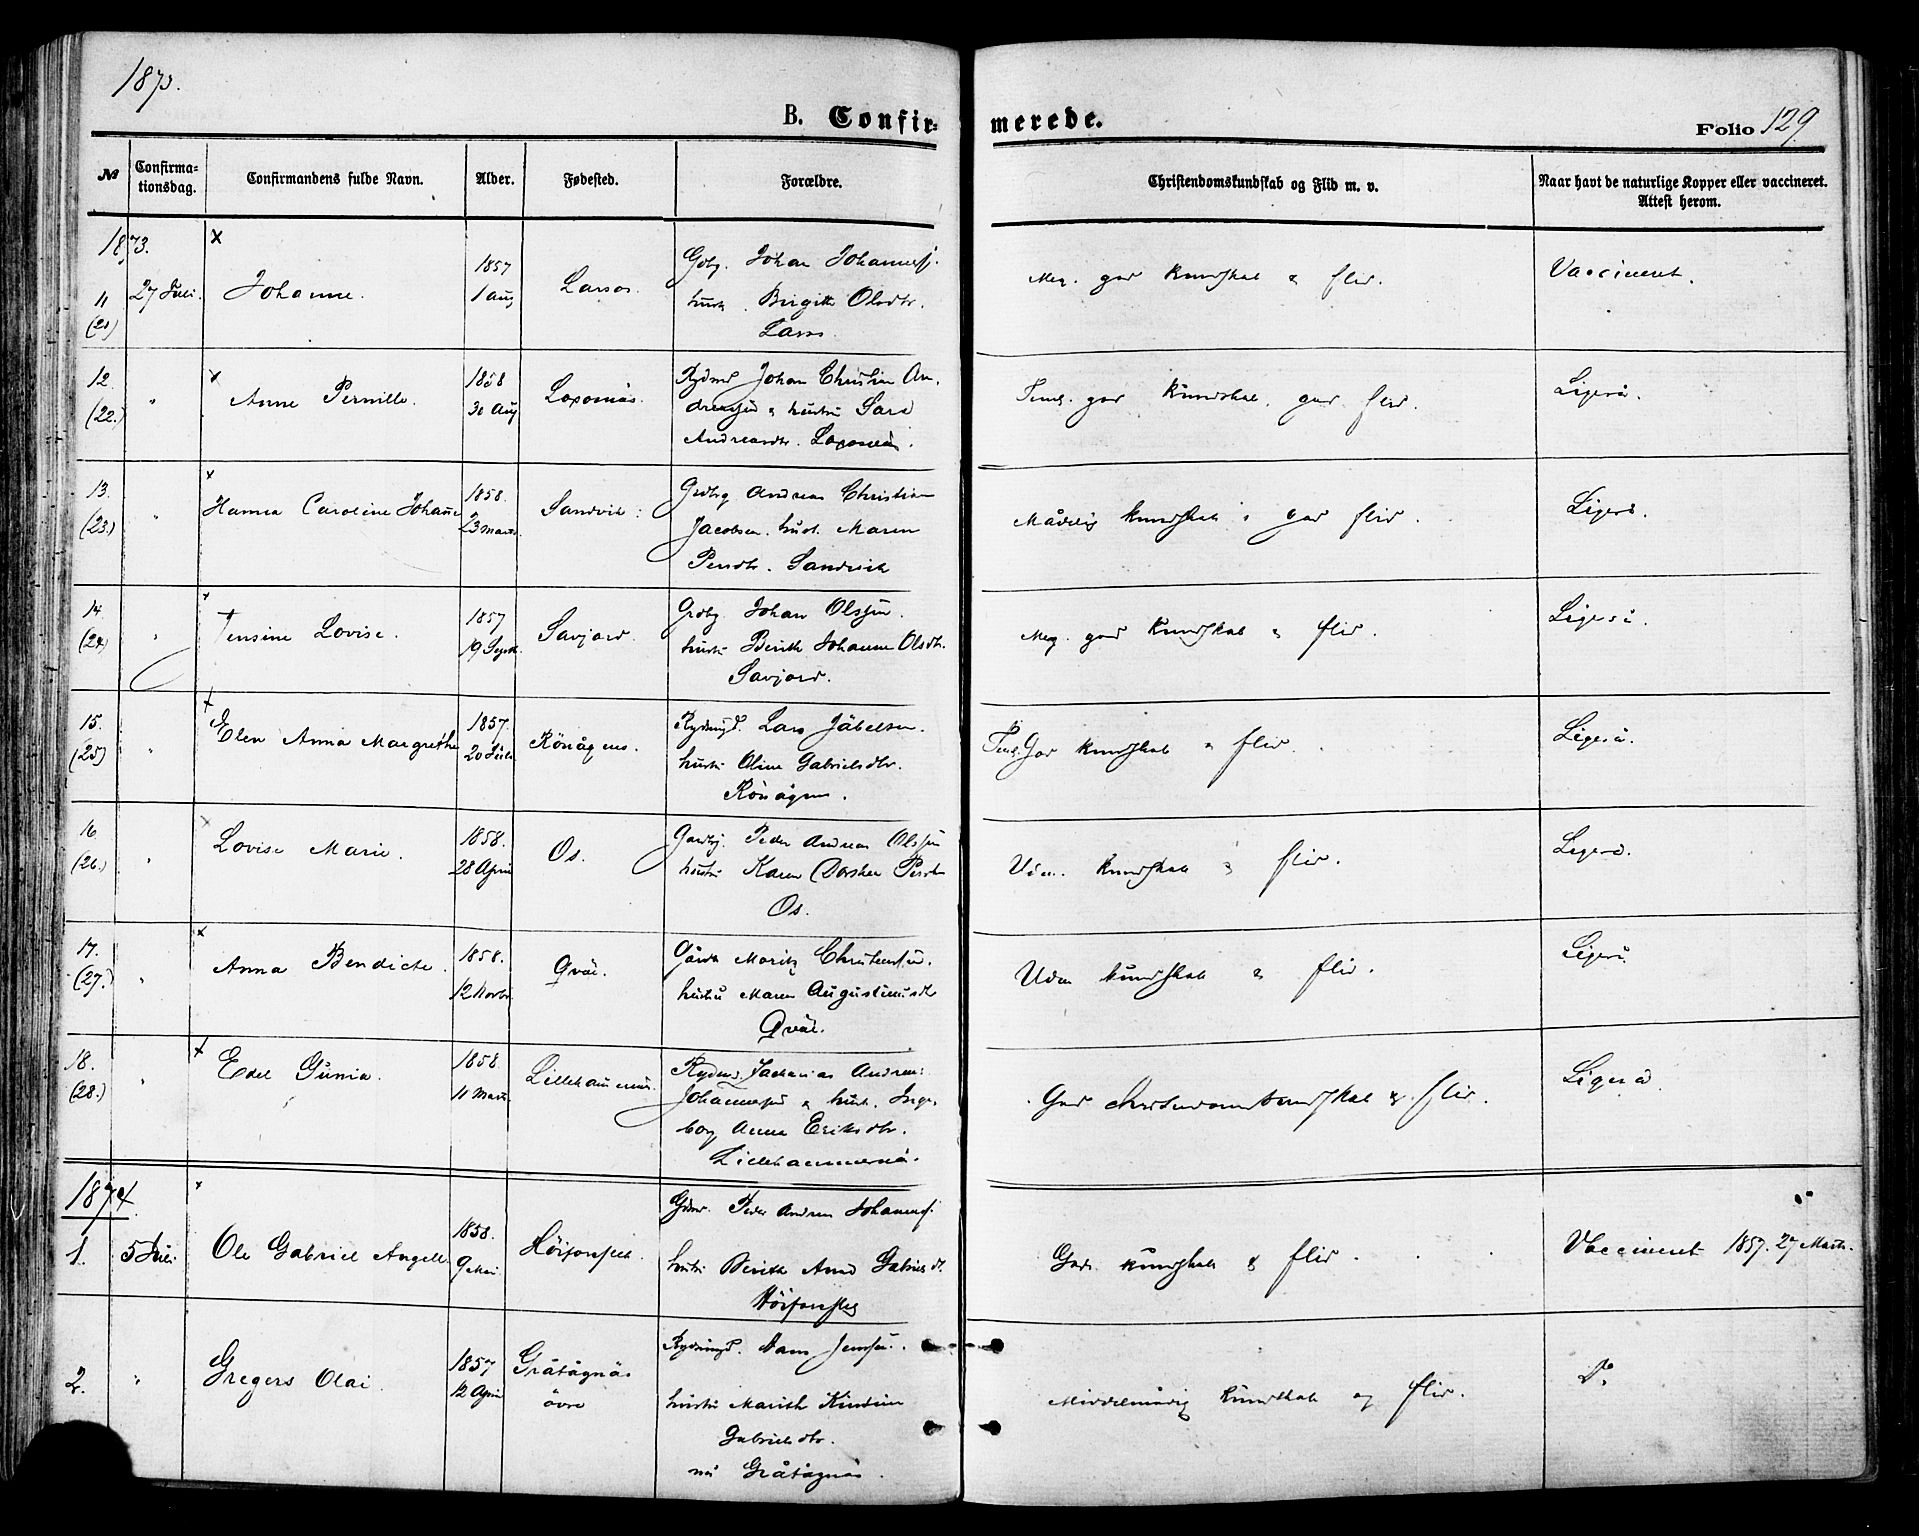 1873.
B. Confir- merede.
Folio 129
№ Confirma-tionsdag. Confirmandens fulde Navn. Alder. Fødested. Forældre. Christendomskundskab og Flid m. v. Naar havt de naturlige Kopper eller vaccineret. Attest herom.
1873.
11 (21) 27 Juli. × Johanne. 1857 1 Aug Larsos. Gdbr. Johan Johannesf.
hustr. Birgitte Olsdtr.
Larsos.
Meg. god kundskab & flid. Vaccineret.
12. (22.) " × Anne Pernille. 1858 30 Aug Laxomås. Rydnd Johan Christian An-
dreassen & hustru Sara
Andreasdtr. Laxomås.
Teml. god kundskab, god flid. Ligeså.
13. (23.) " × Hanna Caroline Johanne 1858. 23 Marts. Sandvik. Grdbrg Andreas Christian
Jacobsen. hust. Maren
Persdtr. Sandvik
Mådelig kundskab & god flid. Ligeså.
14. (24) " Jensine Lovise. 1857 19 Septb. Savjord. Grdbg. Johan Olssen.
hustr. Berith Johanne Olsdtr.
Savjord.
Meg. god kundskab & flid. Ligeså.
15. (25) " Elen Anna Margrethe 1857. 20 Juli Rönågens. Rydningsd. Lars Jäbelsen
hustr. Oline Gabrielsdtr.
Rönågen.
Teml. God kundskab & flid. Ligeså.
16 (26.) " Lovise Marie. 1858. 28 April Os. Gardbr. Peder Andreas Olssen
hustru Karen Dorthea Persdtr
Os.
Udm. kundskab & flid. Ligeså.
17. (27.) " × Anna Bendicte. 1858. 12 Novbr Qväl. Gårdb Moritz Christensen.
hustru Maren Augustinusdtr
Qväl.
Udm kundskab & flid. Ligeså
18. (28.) " Edel Gunia. 1858. 11 Marts Lillehammernäs. Rydnd. Zacharias Andreas
Johannessen & hust. Inge-
borg Anna Eriksdtr.
Lillehammernä.
God christendomskundskab & flid. Ligeså.
1874.
1. 5 Juli Ole Gabriel Angell 1858. 9 Mai Gdmr. Peder Andreas Johannesf.
hustr. Berith Anna Gabrielsdt.
God kundskab & flid. Vaccineret 1857. 27 Marts.
2. " Gregers Olai. 1857 12 April Gråtågnäs övre Rydningsd. Hans Jenssen.
hustru Marith Kirstine
Gabrielsdtr.
Gråtågnäs.
Middelmådig kundskab og flid. Do